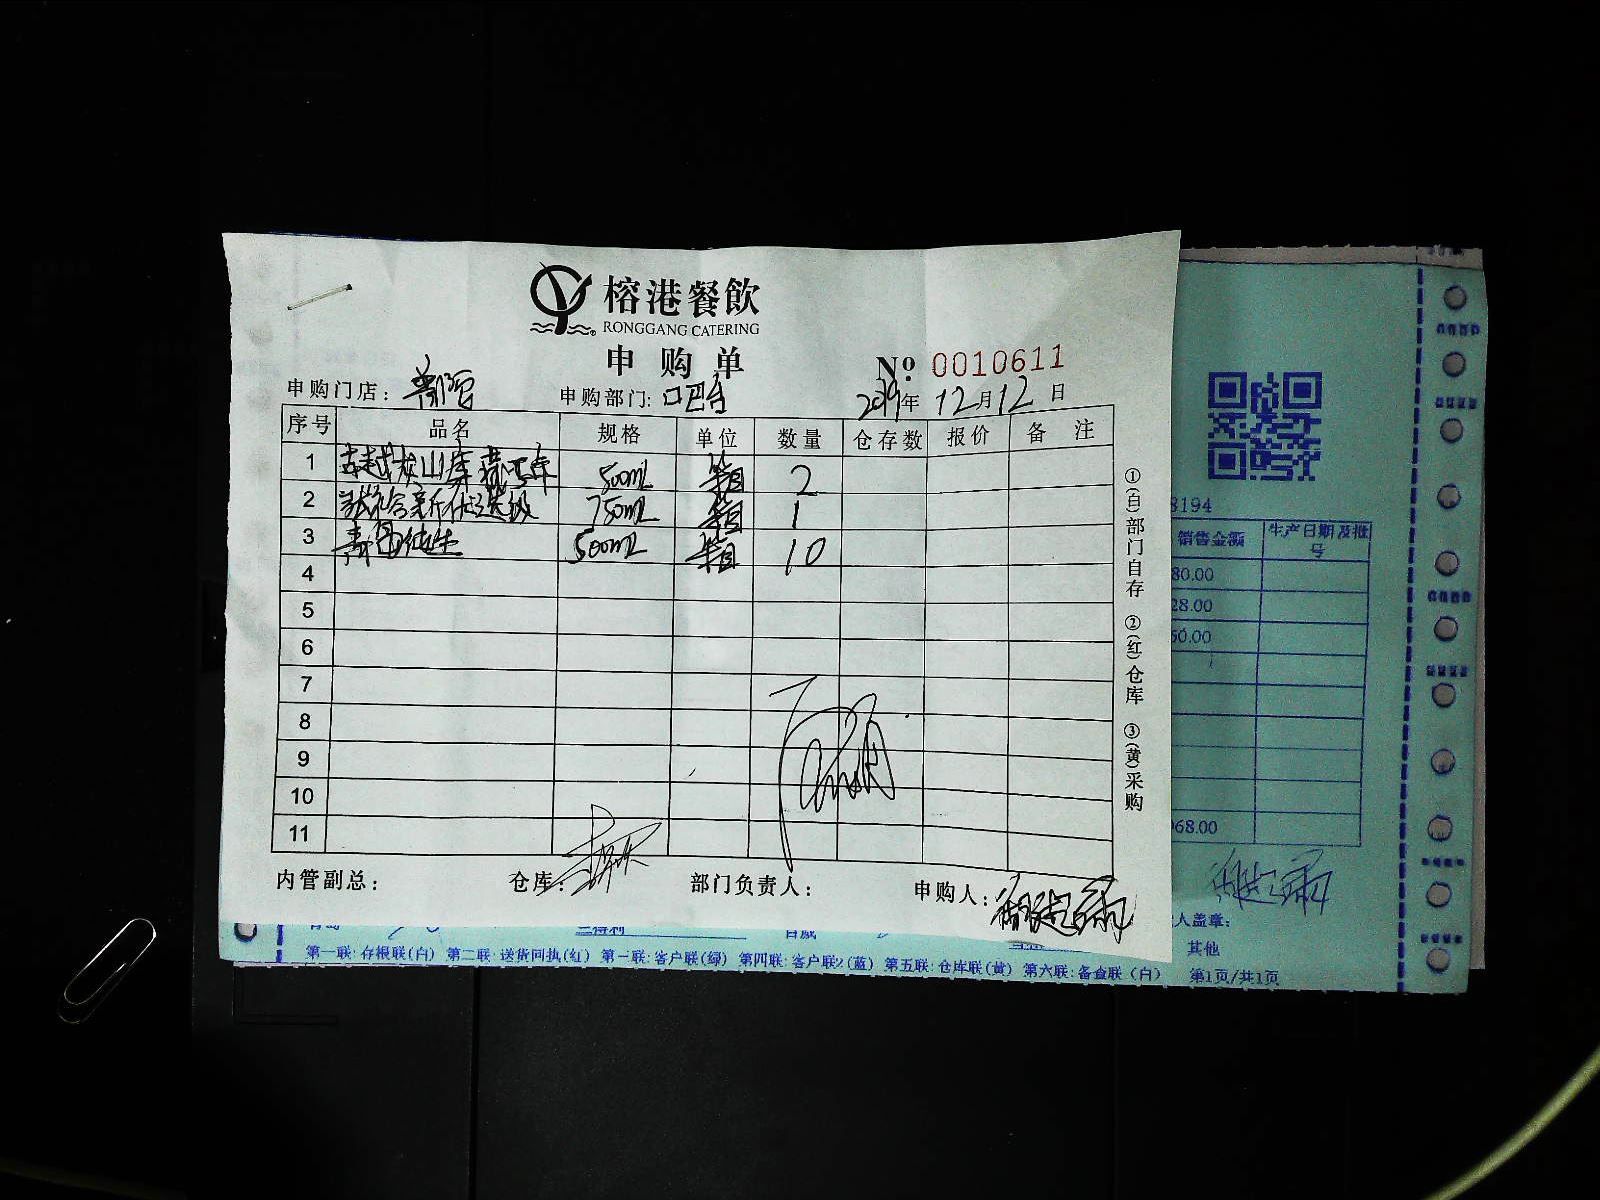 榕港餐飲
RONGGANG CATERING
申购单
№ 0010611
申购门店： 申购部门: 吧台 2019年 12月12日
序号 品名 规格 单位 数量 仓存数 报价 备注
1 500ml 箱 2
2 750ml 箱 1
3 青岛纯生 500ml 箱 10
4
5
6
7
8
9
10
11
内管副总： 仓库： 部门负责人： 申购人：
①(白)部门自存 ②(红)仓库 ③(黄)采购
8194
销售金额 生产日期及批号
80.00
28.00
50.00
968.00
人盖章:
兰得利 百威
其他
第一联: 存根联(白) 第二联: 送货回执(红) 第一联: 客户联(绿) 第四联: 客户联2(蓝) 第五联: 仓库联(黄) 第六联: 备盒联 (白) 第1页/共1页